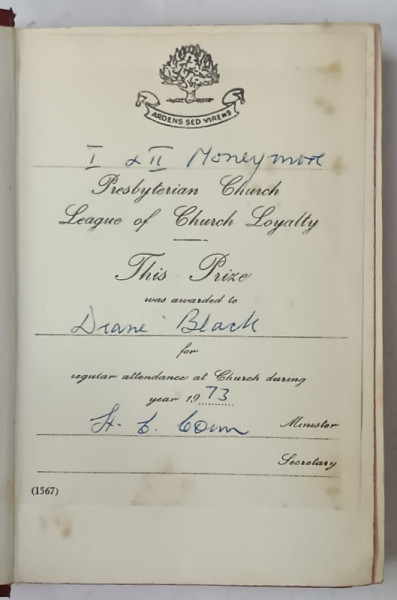 ARDENS SED VIRENS
I & II Moneymore
Presbyterian Church
League of Church Loyalty
This Prize
was awarded to
Diane Black
for
regular attendance at Church during
year 1973
Minister
Secretary
(1567)